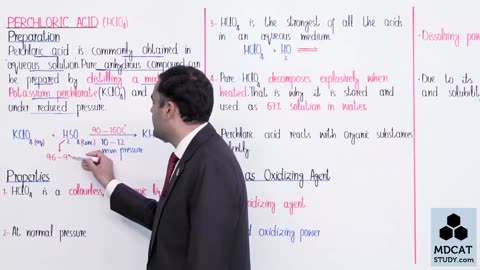 PERCHLORIC ACID (HClO₄)
Preparation
Perchloric acid is commonly obtained in
aqueous solution. Pure anhydrous compound can
be prepared by distilling a mix
Potassium perchlorate (KClO₄) and
under reduced pressure.
KClO₄ (aq) + H₂SO₄ (conc.) 90-160°C
10-12
mm pressure
96-9
Properties
1- HClO₄ is a colourless,
2- At normal pressure
3- HClO₄ is the strongest of all the acids
in an aqueous medium.
HClO₄ + H₂O ⇌
4- Pure HClO₄ decomposes explosively when
heated. That is why it is stored and
used as 67% solution in water.
Perchloric acid reacts with organic substance
Oxidizing Agent
agent
oxidizing power
- Dissolving pow
- Due to its
and solubilit
MDCAT
STUDY.com